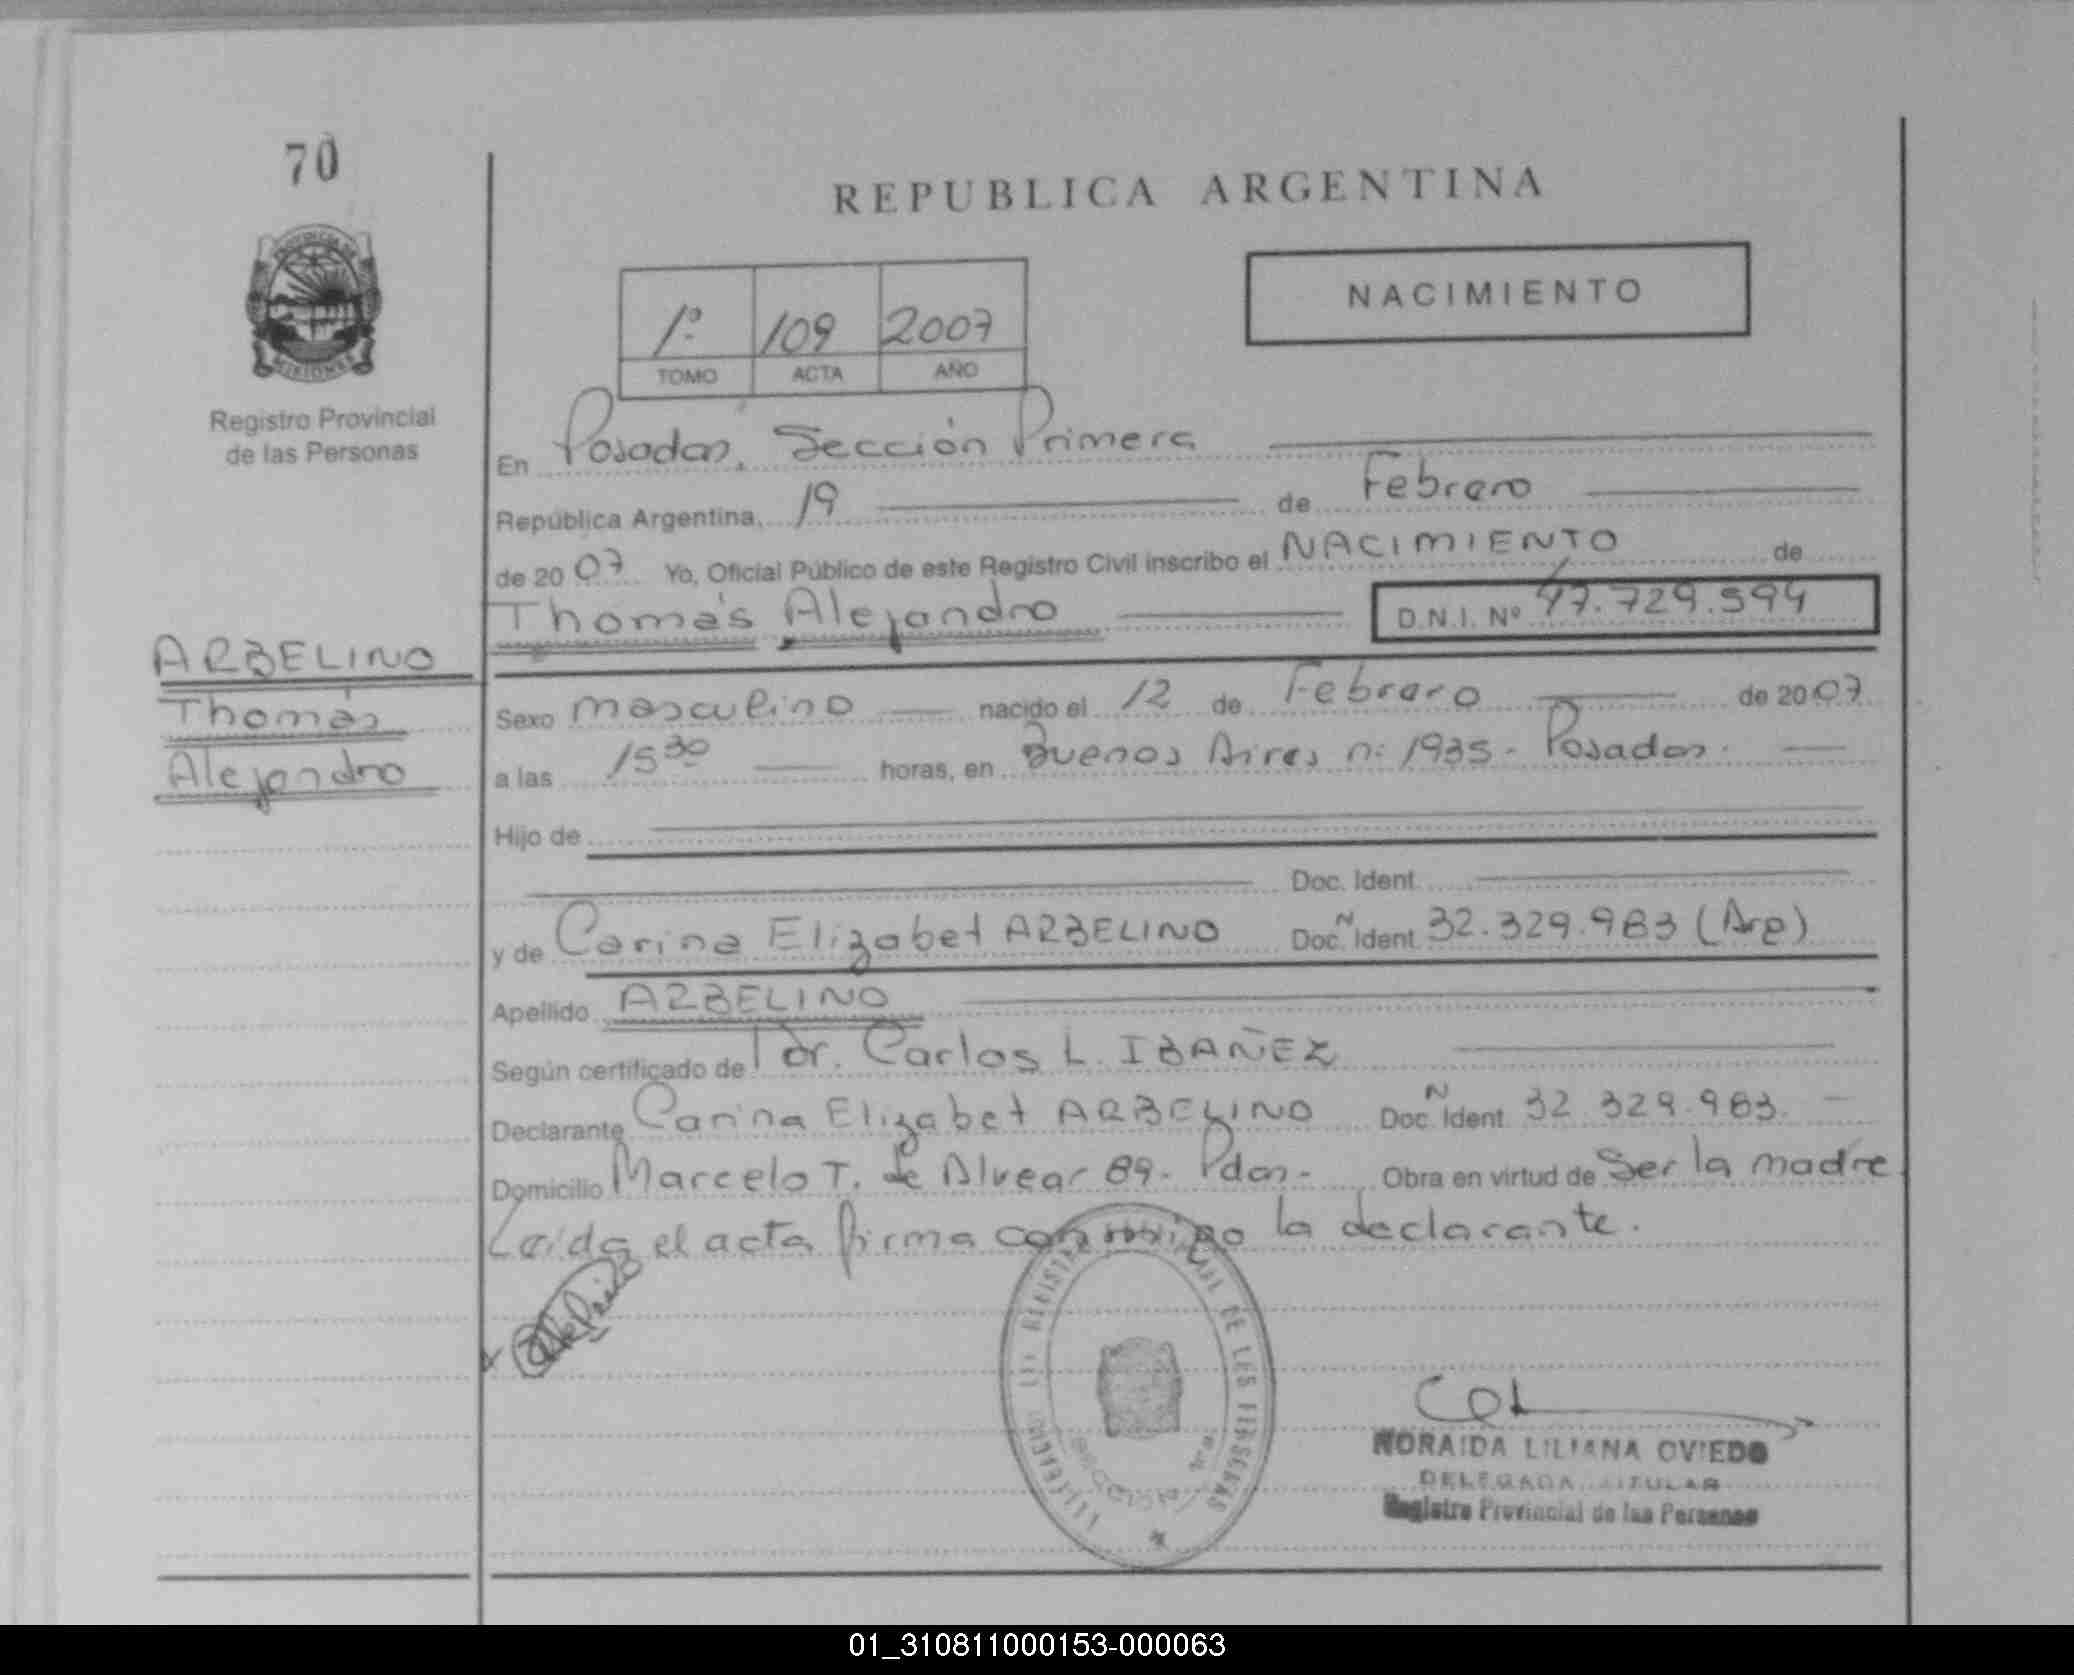 70
REPUBLICA ARGENTINA
NACIMIENTO
1º 109 2007
TOMO ACTA AÑO
PROVINCIA DE
MISIONES
Registro Provincial
de las Personas
En Posadas, Sección Primera
República Argentina, 19 de Febrero
de 2007 Yo, Oficial Público de este Registro Civil inscribo el NACIMIENTO de
Thomás Alejandro D.N.I. Nº 47.729.594
ARBELINO
Thomás
Alejandro
Sexo masculino nacido el 12 de Febrero de 2007
a las 15 30 horas, en Buenos Aires nº 1935 - Posadas.
Hijo de
Doc. Ident.
y de Carina Elizabet ARBELINO Doc. N Ident. 32.329.983 (Arg)
Apellido ARBELINO
Según certificado de Dr. Carlos L. IBAÑEZ
Declarante Carina Elizabet ARBELINO Doc. N Ident. 32.329.983. -
Domicilio Marcelo T. de Alvear 89 - Pdas - Obra en virtud de Ser la madre.
Leída el acta firma conmigo la declarante.
NORAIDA LILIANA OVIEDO
DELEGADA TITULAR
Registro Provincial de las Personas
01_310811000153-000063